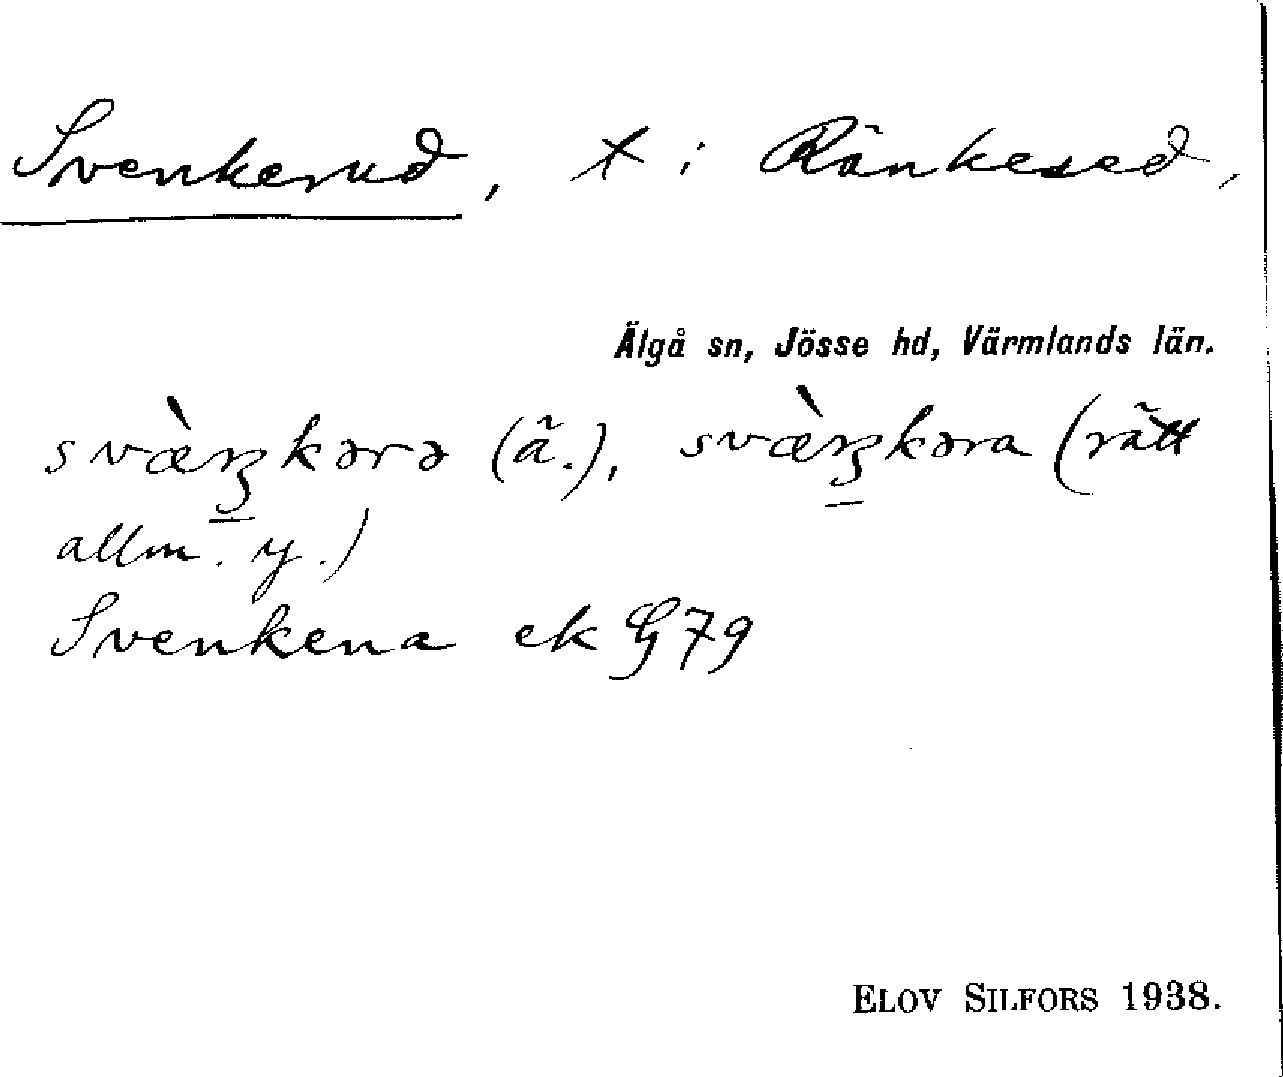 Svenkerud, t i Ränkesed,
Älgå sn, Jösse hd, Värmlands län.
svæ̀ŋkərə (ä.), svæ̀ŋkəra (rätt
allm. y.)
Svenkena ek G 79
ELOV SILFORS 1938.